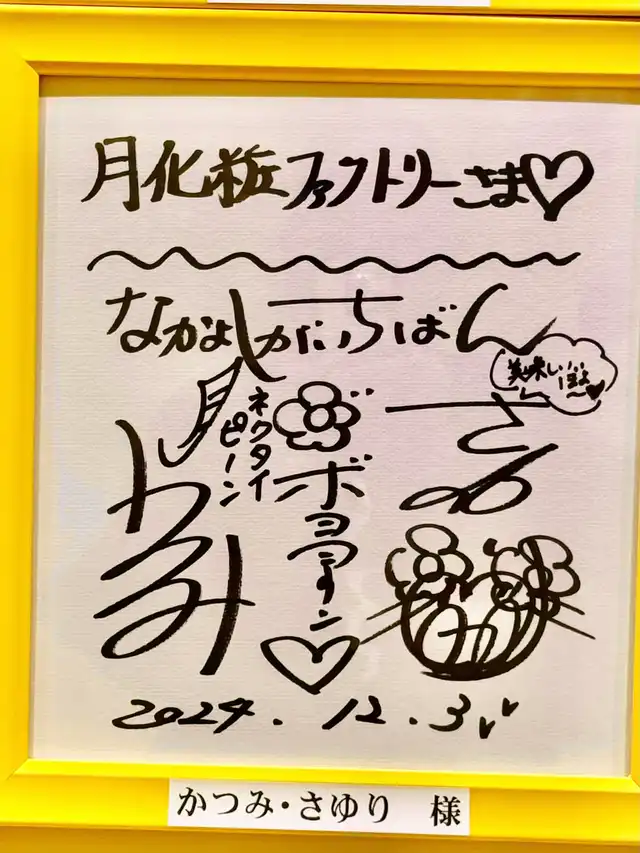 月化粧ファクトリーさま♡
なかよしがいちばん
美味しい
ほよ〜♥
ネクタイ
ピーン
ボヨヨヨーン
かつみ
さゆり
2024.12.3
かつみ・さゆり 様